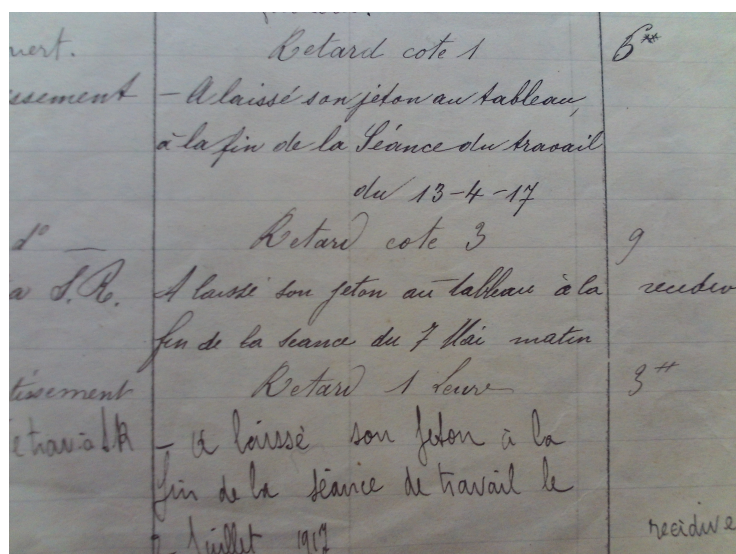 vert. Retard cote 1 6
issement - A laissé son jeton au tableau,
à la fin de la Séance du travail
du 13-4-17
d° — Retard cote 3 9
a S.R. A laissé son jeton au tableau à la
fin de la seance du 7 Mai matin
tissement Retard 1 heure 3
- a laissé son jeton à la
fin de la séance de travail le
Juillet 1917 recidive